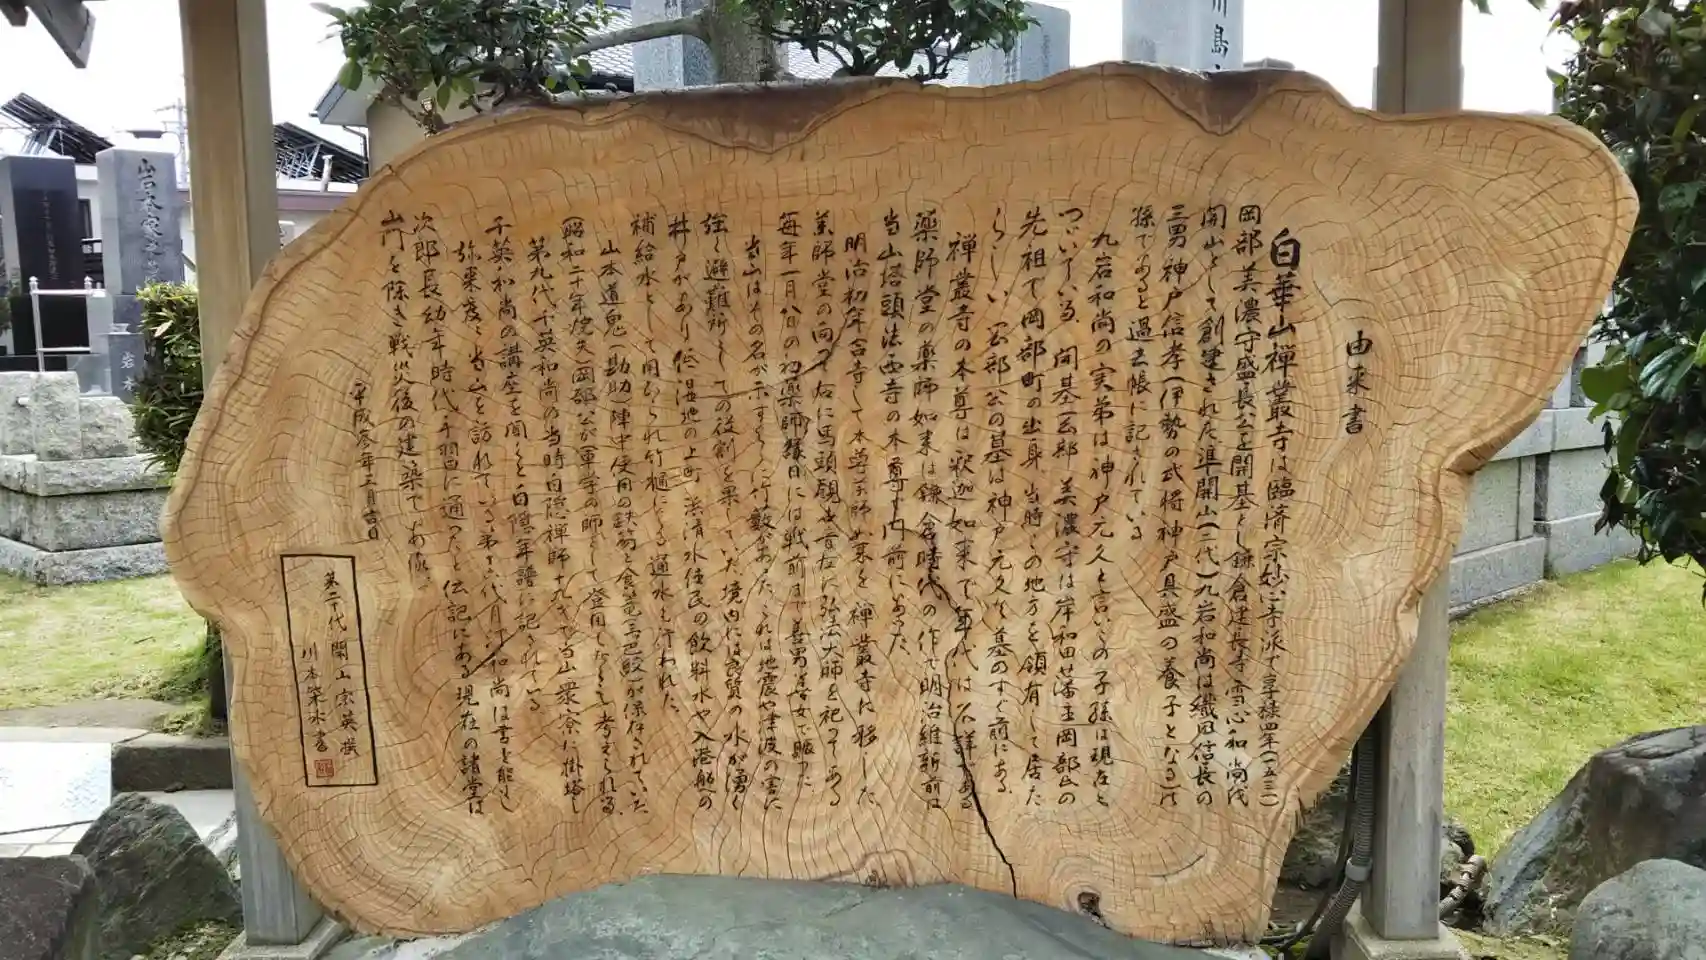 由来書
白華山禅叢寺は臨済宗妙心寺派で享禄四年(一五三一)
岡部美濃守盛長公を開基とし鎌倉建長寺雪心和尚代
開山として創建された準開山(二代)九岩和尚は織田信長の
三男神戸信孝(伊勢の武将神戸具盛の養子となる)の
孫であると過去帳に記されている
九岩和尚の実弟は神戸元久と言いその子孫は現在と
つづいている、開基(岡部美濃守は岸和田藩主岡部氏の
先祖で岡部町の出身当時この地方を領有して居た
らしい、岡部公の墓は神戸元久の墓のすぐ前にある、
禅叢寺の本尊は釈迦如来で年代は不詳である
薬師堂の薬師如来は鎌倉時代の作で明治維新前は
当山塔頭法西寺の本尊で門前にあった
明治初年合寺して本尊薬師如来を禅叢寺に移した
薬師堂の向って右に馬頭観世音左に弘法大師を祀ってある
毎年一月八日の初薬師縁日には戦前まで善男善女で賑った
当山はその名が示すように竹藪があったこれは地震や津波の害に
強く避難所としての役割を果していた境内には良質の水が湧く
井戸があり低湿地の上町、浜清水住民の飲料水や入港船の
補給水として用いられ竹樋による通水も行われた
山本道鬼(勘助)陣中使用の鉄笏と食籠(三巴紋)が保存されていた
(昭和二十年焼失)岡部公が軍学の師として登用したものと考えられる
第九代千英和尚の当時白隠禅師十九才で当山衆寮に掛塔し
千英和尚の講座を聞くと白隠年譜に記されている
弥来度々当山を訪れている第十六代月汀和尚は書を能くし
次郎長幼年時代手習に通ったと伝記にある現在の諸堂は
山門を除き戦災後の建築である
平成参年三月吉日
第二十代 開山宗英撰
川本 書
川島
山本家之
岩本